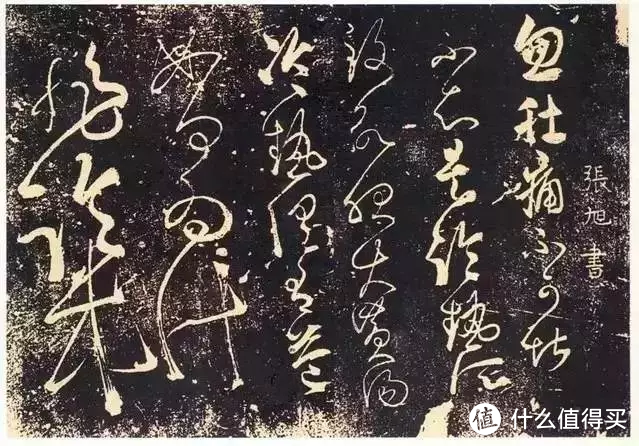 張旭書
忽肚痛不可堪
不知是冷熱所
致欲服大黃湯
冷熱俱有益
如何為計
非臨床
值 什么值得买